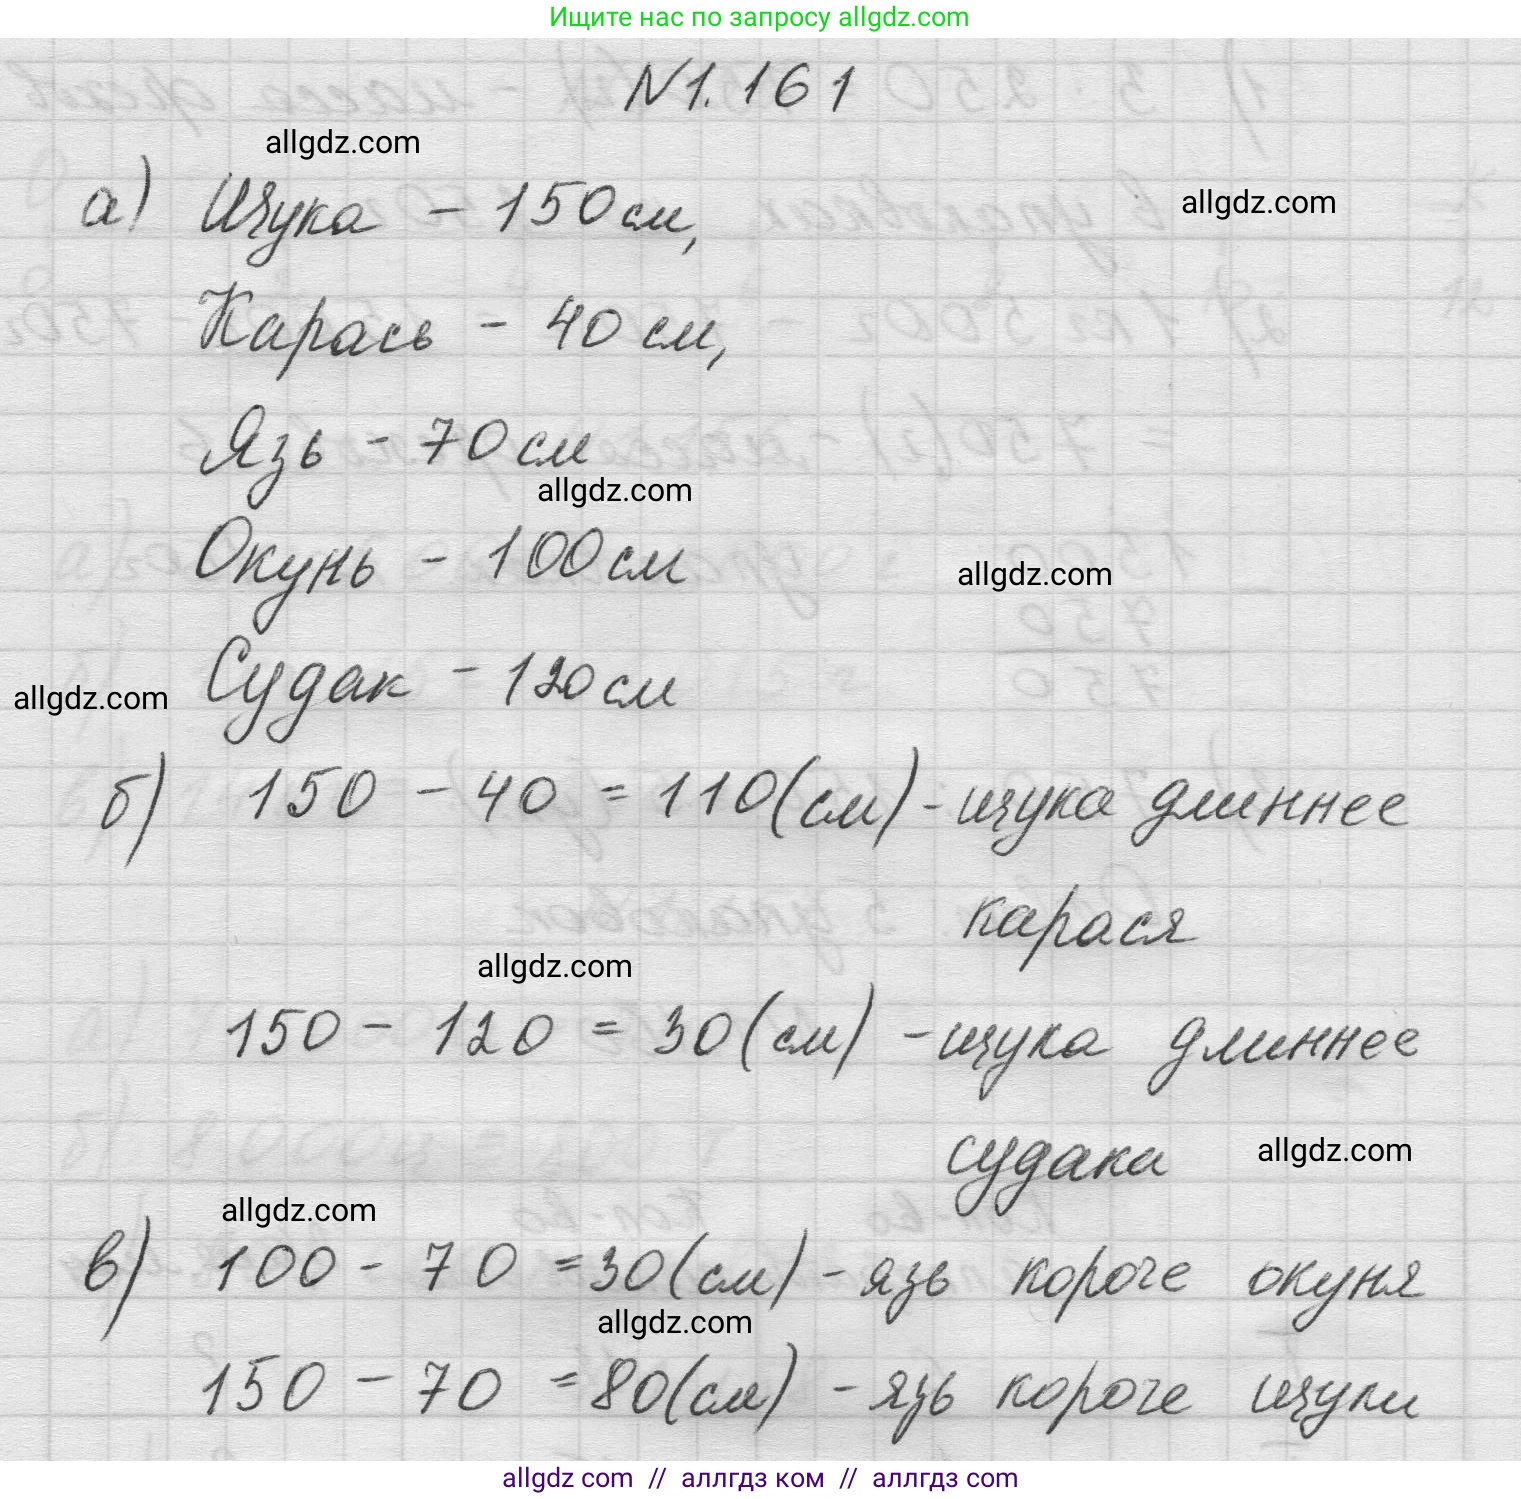 Ищите нас по запросу allgdz.com
N1.161
allgdz.com
а) Щука - 150 см,
allgdz.com
Карась - 40 см,
Язь - 70 см
allgdz.com
Окунь - 100 см
allgdz.com
Судак - 120 см
allgdz.com
б) 150 - 40 = 110 (см) - щука длиннее
карася
allgdz.com
150 - 120 = 30 (см) - щука длиннее
судака
allgdz.com
allgdz.com
в) 100 - 70 = 30 (см) - язь короче окуня
allgdz.com
150 - 70 = 80 (см) - язь короче щуки
allgdz com // аллгдз ком // аллгдз com